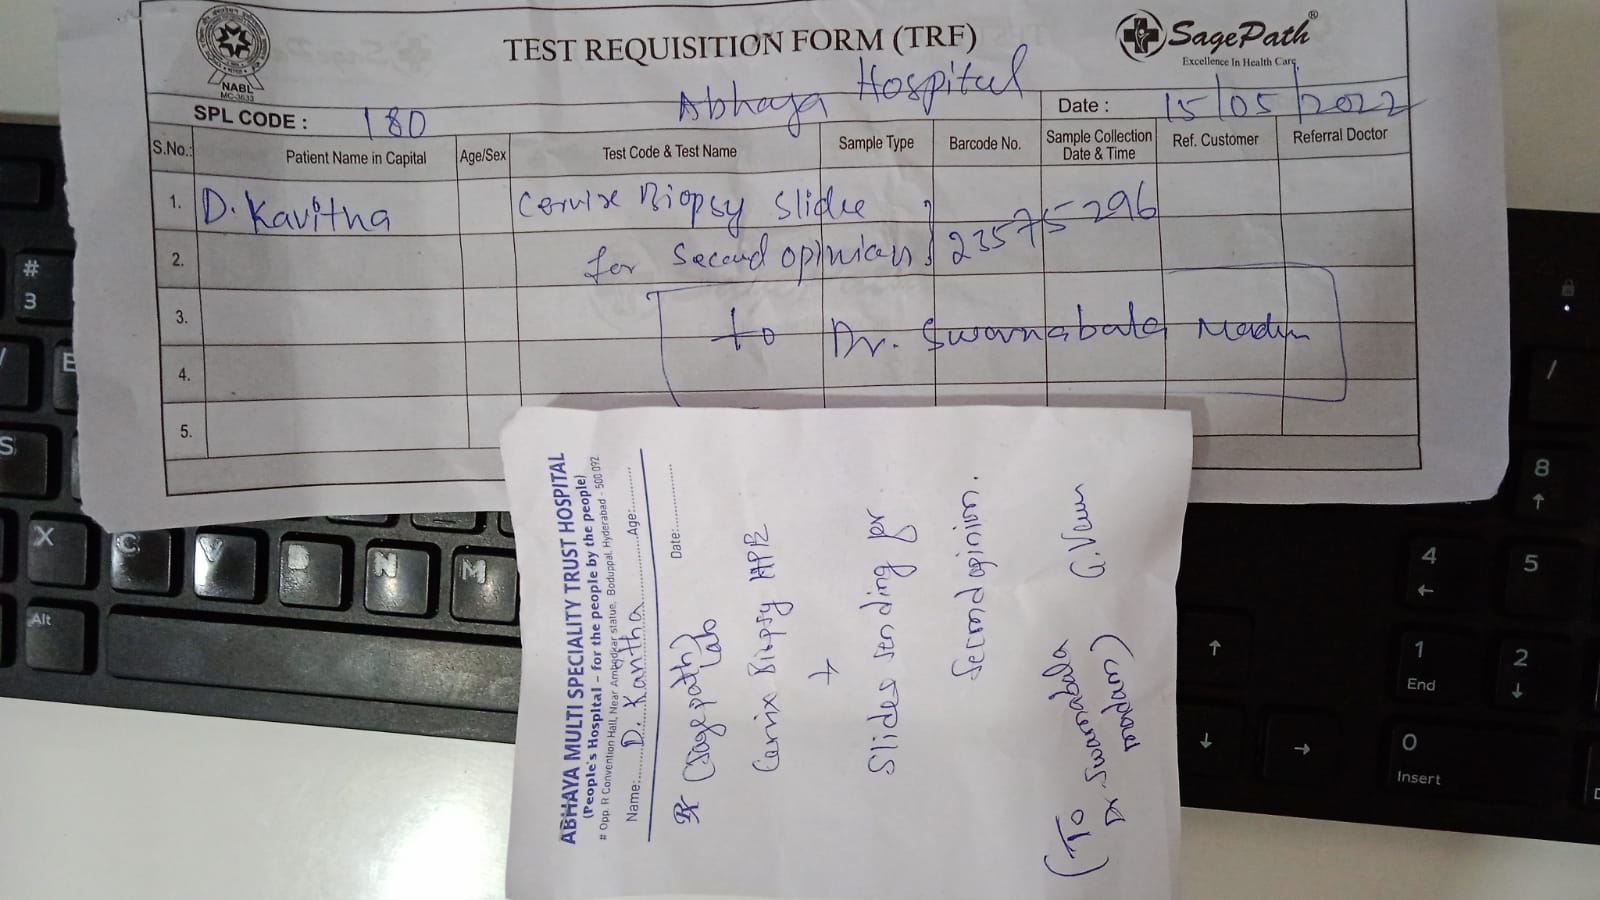 NABL
MC-3633
TEST REQUISITION FORM (TRF)
SagePath®
Excellence In Health Care
SPL CODE : 180
Abhaya Hospital
Date : 15/05/2022
S.No.: Patient Name in Capital Age/Sex Test Code & Test Name Sample Type Barcode No. Sample Collection Date & Time Ref. Customer Referral Doctor
1. D. Kavitha Cervix Biopsy slide
2. for Second opinion 23575296
3. to Dr. Swarnabala Madam
4.
5.
ABHAYA MULTI SPECIALITY TRUST HOSPITAL
(People's Hospital – for the people by the people)
# Opp. R Convention Hall, Near Ambedkar statue, Boduppal, Hyderabad - 500 092
Name: D. Kantha Age:
Date:
Rx (Sagepath) Lab
Cervix Biopsy HPE
+
Slides sending for
Second opinion.
(To
Dr. Swarnabala
madam)
# 3
X C V B N M
Alt
S
/
8
4 5
1 End 2
0 Insert